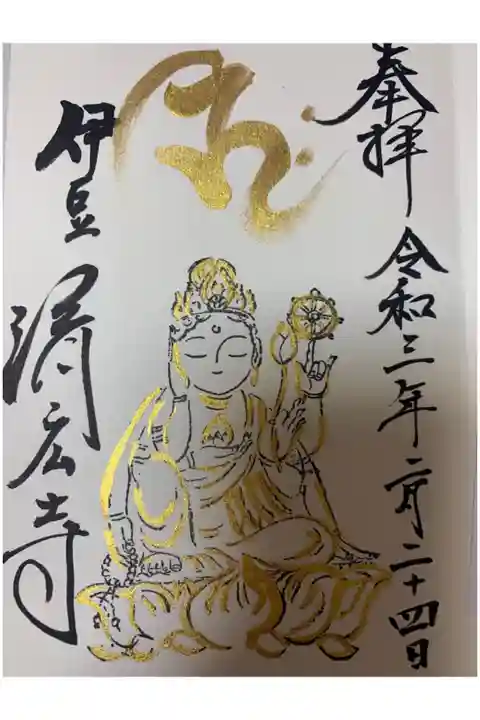 奉拝 令和三年二月二十四日
伊豆 清広寺